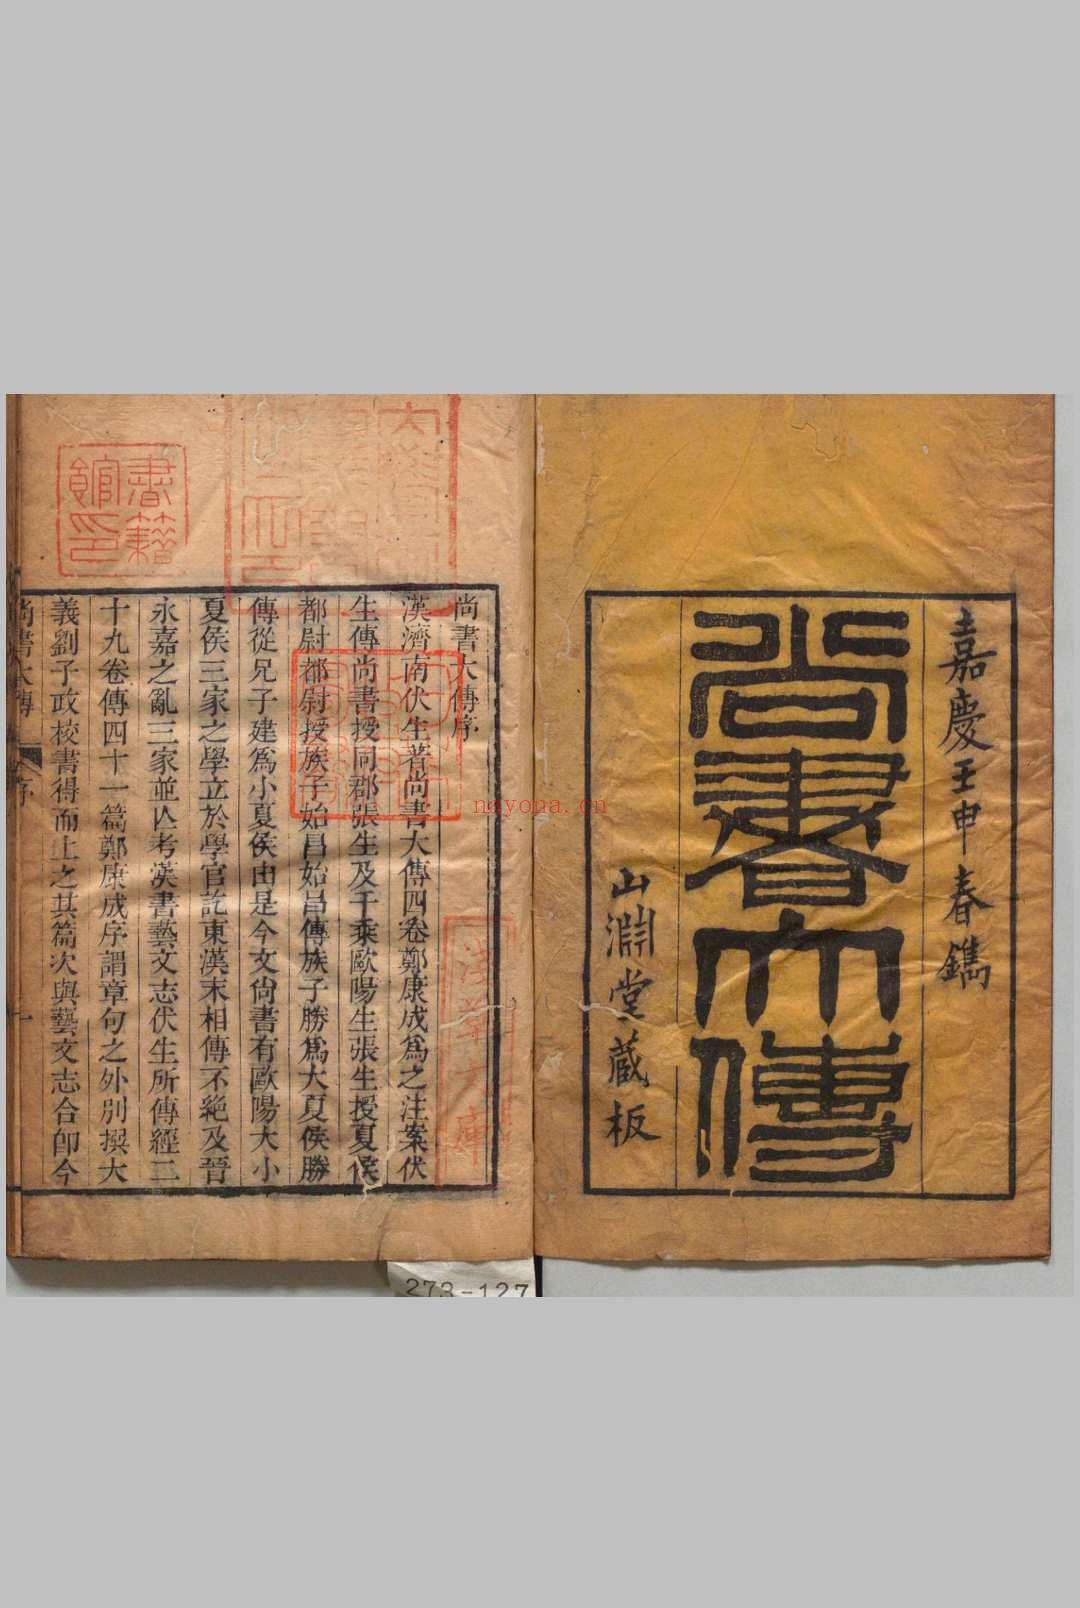 嘉慶壬申春鐫
尚書大傳
山淵堂藏板
尚書大傳序
漢濟南伏生著尚書大傳四卷鄭康成為之注案伏
生傳尚書授同郡張生及千乘歐陽生張生授夏侯
都尉都尉授族子始昌始昌傳族子勝爲大夏侯勝
傳從兄子建爲小夏侯由是今文尚書有歐陽大小
夏侯三家之學立於學官訖東漢末相傳不絶及晉
永嘉之亂三家並亾考漢書藝文志伏生所傳經二
十九卷傳四十一篇鄭康成序謂章句之外别撰大
義劉子政校書得而上之其篇次與藝文志合卽今
尚書大傳
序
一
書籍
館印
淺草文庫
nayona.cn
273-127